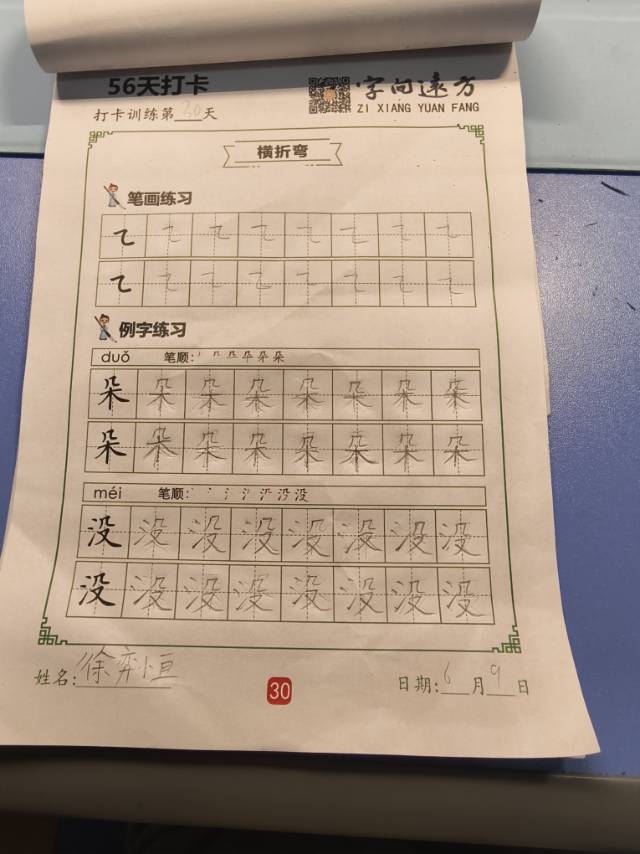 56天打卡
字向远方
打卡训练第30天
ZI XIANG YUAN FANG
横折弯
笔画练习
㇍ ㇍ ㇍ ㇍ ㇍ ㇍ ㇍ ㇍
㇍ ㇍ ㇍ ㇍ ㇍ ㇍ ㇍ ㇍
例字练习
duǒ 笔顺:
朵 朵 朵 朵 朵 朵 朵 朵
朵 朵 朵 朵 朵 朵 朵 朵
méi 笔顺:
没 没 没 没 没 没 没 没
没 没 没 没 没 没 没 没
姓名:徐弈恒
30
日期:6月9日